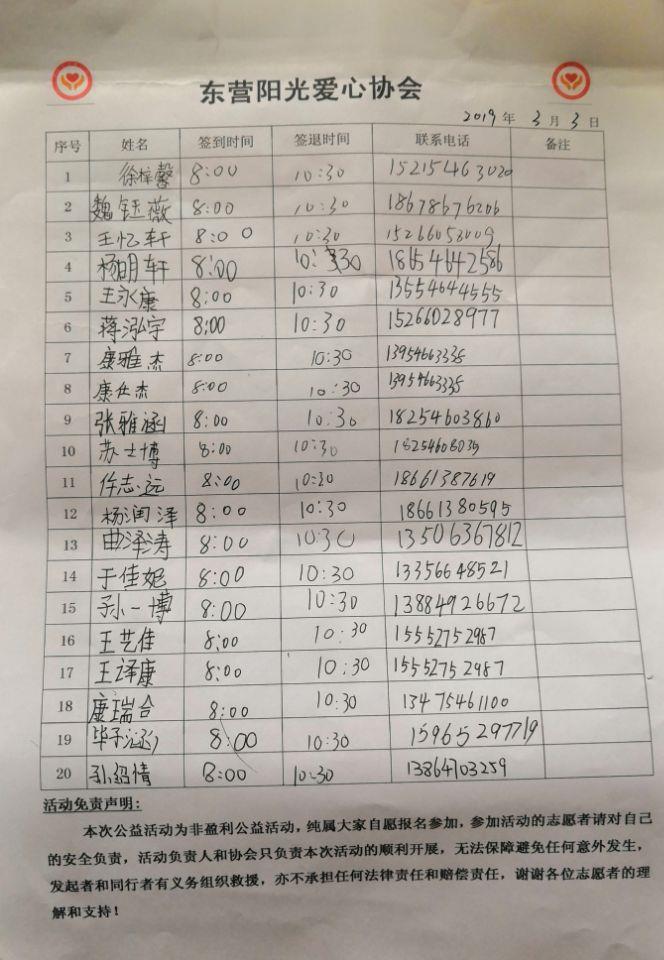 东营阳光爱心协会
2019 年 3 月 3 日
序号 姓名 签到时间 签退时间 联系电话 备注
1 徐梓馨 8:00 10:30 15215463020
2 魏钰薇 8:00 10:30 18678676206
3 王忆轩 8:00 10:30 15266053009
4 杨明轩 8:00 10:30 18654642586
5 王永康 8:00 10:30 13554644555
6 蒋泓宇 8:00 10:30 15266028977
7 康雅杰 8:00 10:30 13954663335
8 康仕杰 8:00 10:30 13954663335
9 张雅涵 8:00 10:30 18254603860
10 苏士博 8:00 10:30 18254608035
11 仵志远 8:00 10:30 18661387619
12 杨润泽 8:00 10:30 18661380595
13 曲泽涛 8:00 10:30 13506367812
14 于佳妮 8:00 10:30 13356648521
15 孙一博 8:00 10:30 13884926672
16 王艺佳 8:00 10:30 15552752987
17 王译康 8:00 10:30 15552752987
18 唐瑞合 8:00 10:30 13475461100
19 毕子涵 8:00 10:30 15965297719
20 孙绍情 8:00 10:30 13864703259
活动免责声明:
本次公益活动为非盈利公益活动，纯属大家自愿报名参加，参加活动的志愿者请对自己
的安全负责，活动负责人和协会只负责本次活动的顺利开展，无法保障避免任何意外发生，
发起者和同行者有义务组织救援，亦不承担任何法律责任和赔偿责任，谢谢各位志愿者的理
解和支持！